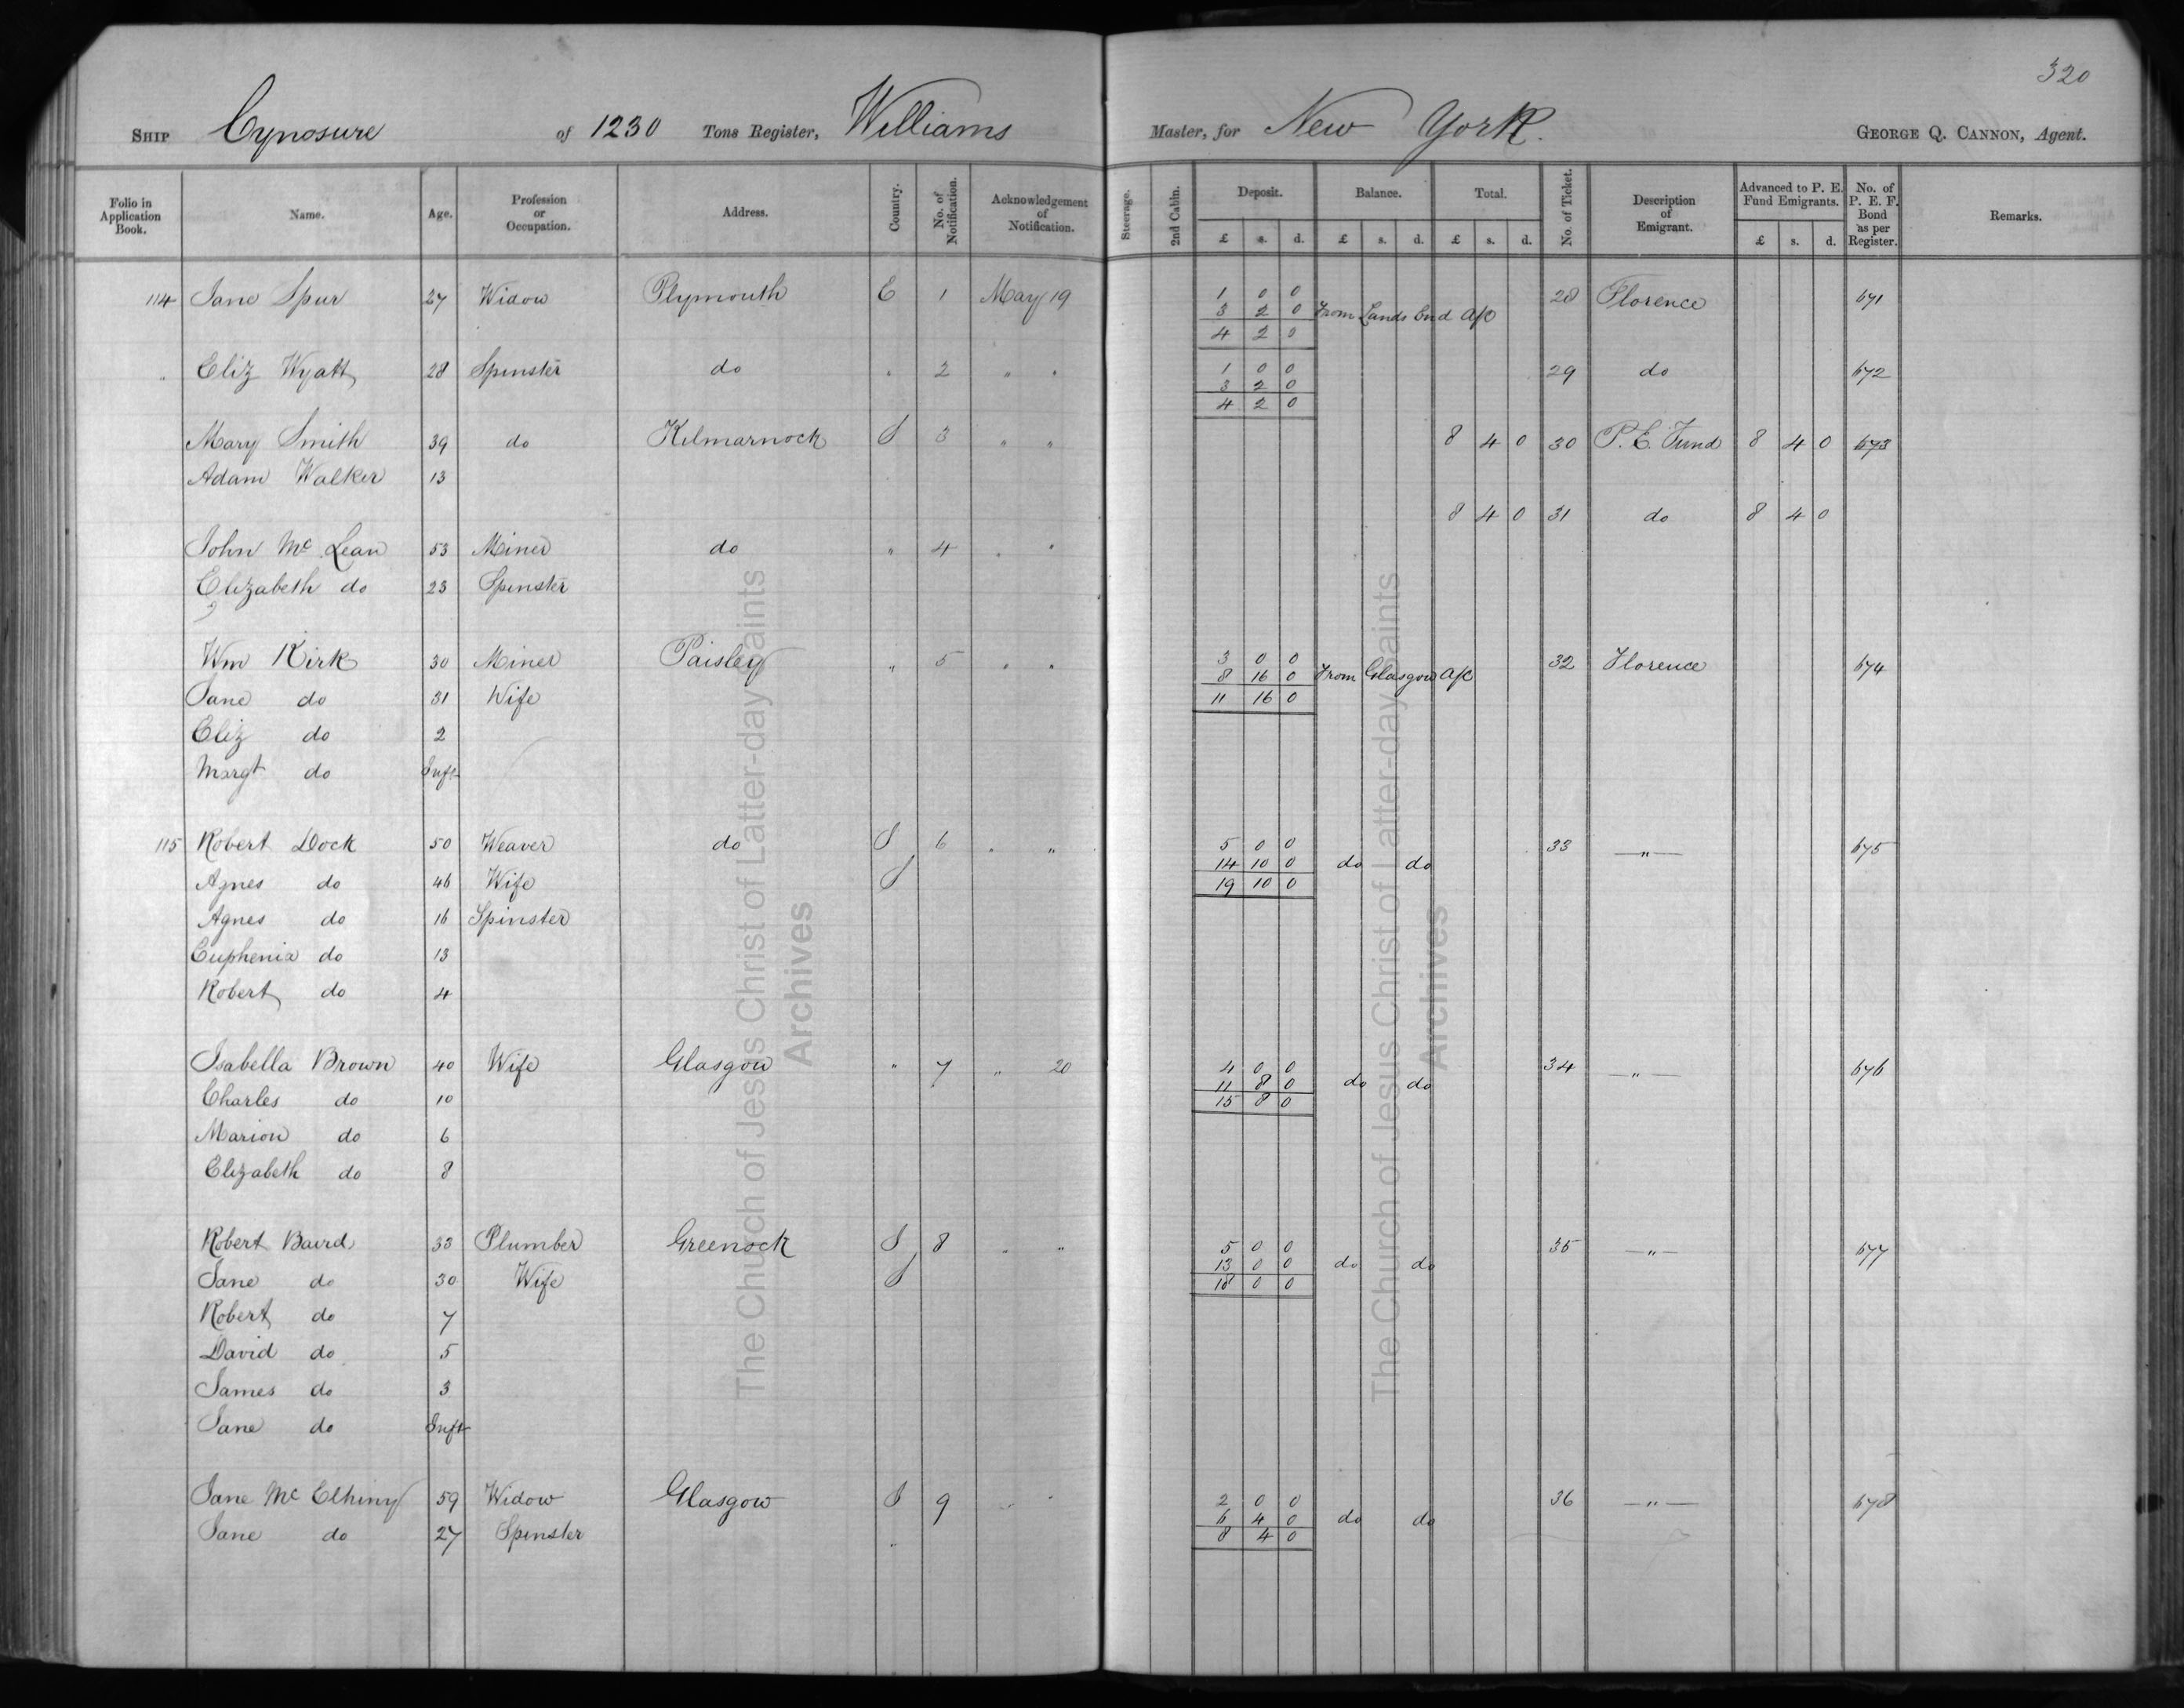 320
SHIP Cynosure of 1230 Tons Register, Williams Master, for New York. GEORGE Q. CANNON, Agent.
Folio in Application Book. Name. Age. Profession or Occupation. Address. Country. No. of Notification. Acknowledgement of Notification. Steerage. 2nd Cabin. Deposit. Balance. Total. No. of Ticket. Description of Emigrant. Advanced to P. E. Fund Emigrants. No. of P. E. F. Bond as per Register. Remarks.
£ s. d. £ s. d. £ s. d. £ s. d.
114 Jane Spur 27 Widow Plymouth E 1 May 19 1 0 0 28 Florence 671
3 2 0 From Lands End A/c
4 2 0
" Eliz Wyatt 28 Spinster do " 2 " " 1 0 0 29 do 672
3 2 0
4 2 0
Mary Smith 39 do Kilmarnock S 3 " " 8 4 0 30 P. E. Fund 8 4 0 673
Adam Walker 13
8 4 0 31 do 8 4 0
John Mc Lean 53 Miner do " 4 " "
Elizabeth do 23 Spinster
Wm Kirk 30 Miner Paisley " 5 " " 3 0 0 32 Florence 674
8 16 0 From Glasgow A/c
Jane do 31 Wife 11 16 0
Eliz do 2
Margt do Inft
115 Robert Dock 50 Weaver do S 6 " " 5 0 0 33 " 675
14 10 0 do do
Agnes do 46 Wife S 19 10 0
Agnes do 16 Spinster
Euphenia do 13
Robert do 4
Isabella Brown 40 Wife Glasgow " 7 " 20 4 0 0 34 " 676
11 8 0 do do
Charles do 10 15 8 0
Marion do 6
Elizabeth do 8
Robert Baird 33 Plumber Greenock S 8 " " 5 0 0 35 " 677
13 0 0 do do
Jane do 30 Wife S 18 0 0
Robert do 7
David do 5
James do 3
Jane do Inft
Jane Mc Elhiny 59 Widow Glasgow S 9 " " 2 0 0 36 " 678
6 4 0 do do
Jane do 27 Spinster " 8 4 0
The Church of Jesus Christ of Latter-day Saints
Archives
The Church of Jesus Christ of Latter-day Saints
Archives